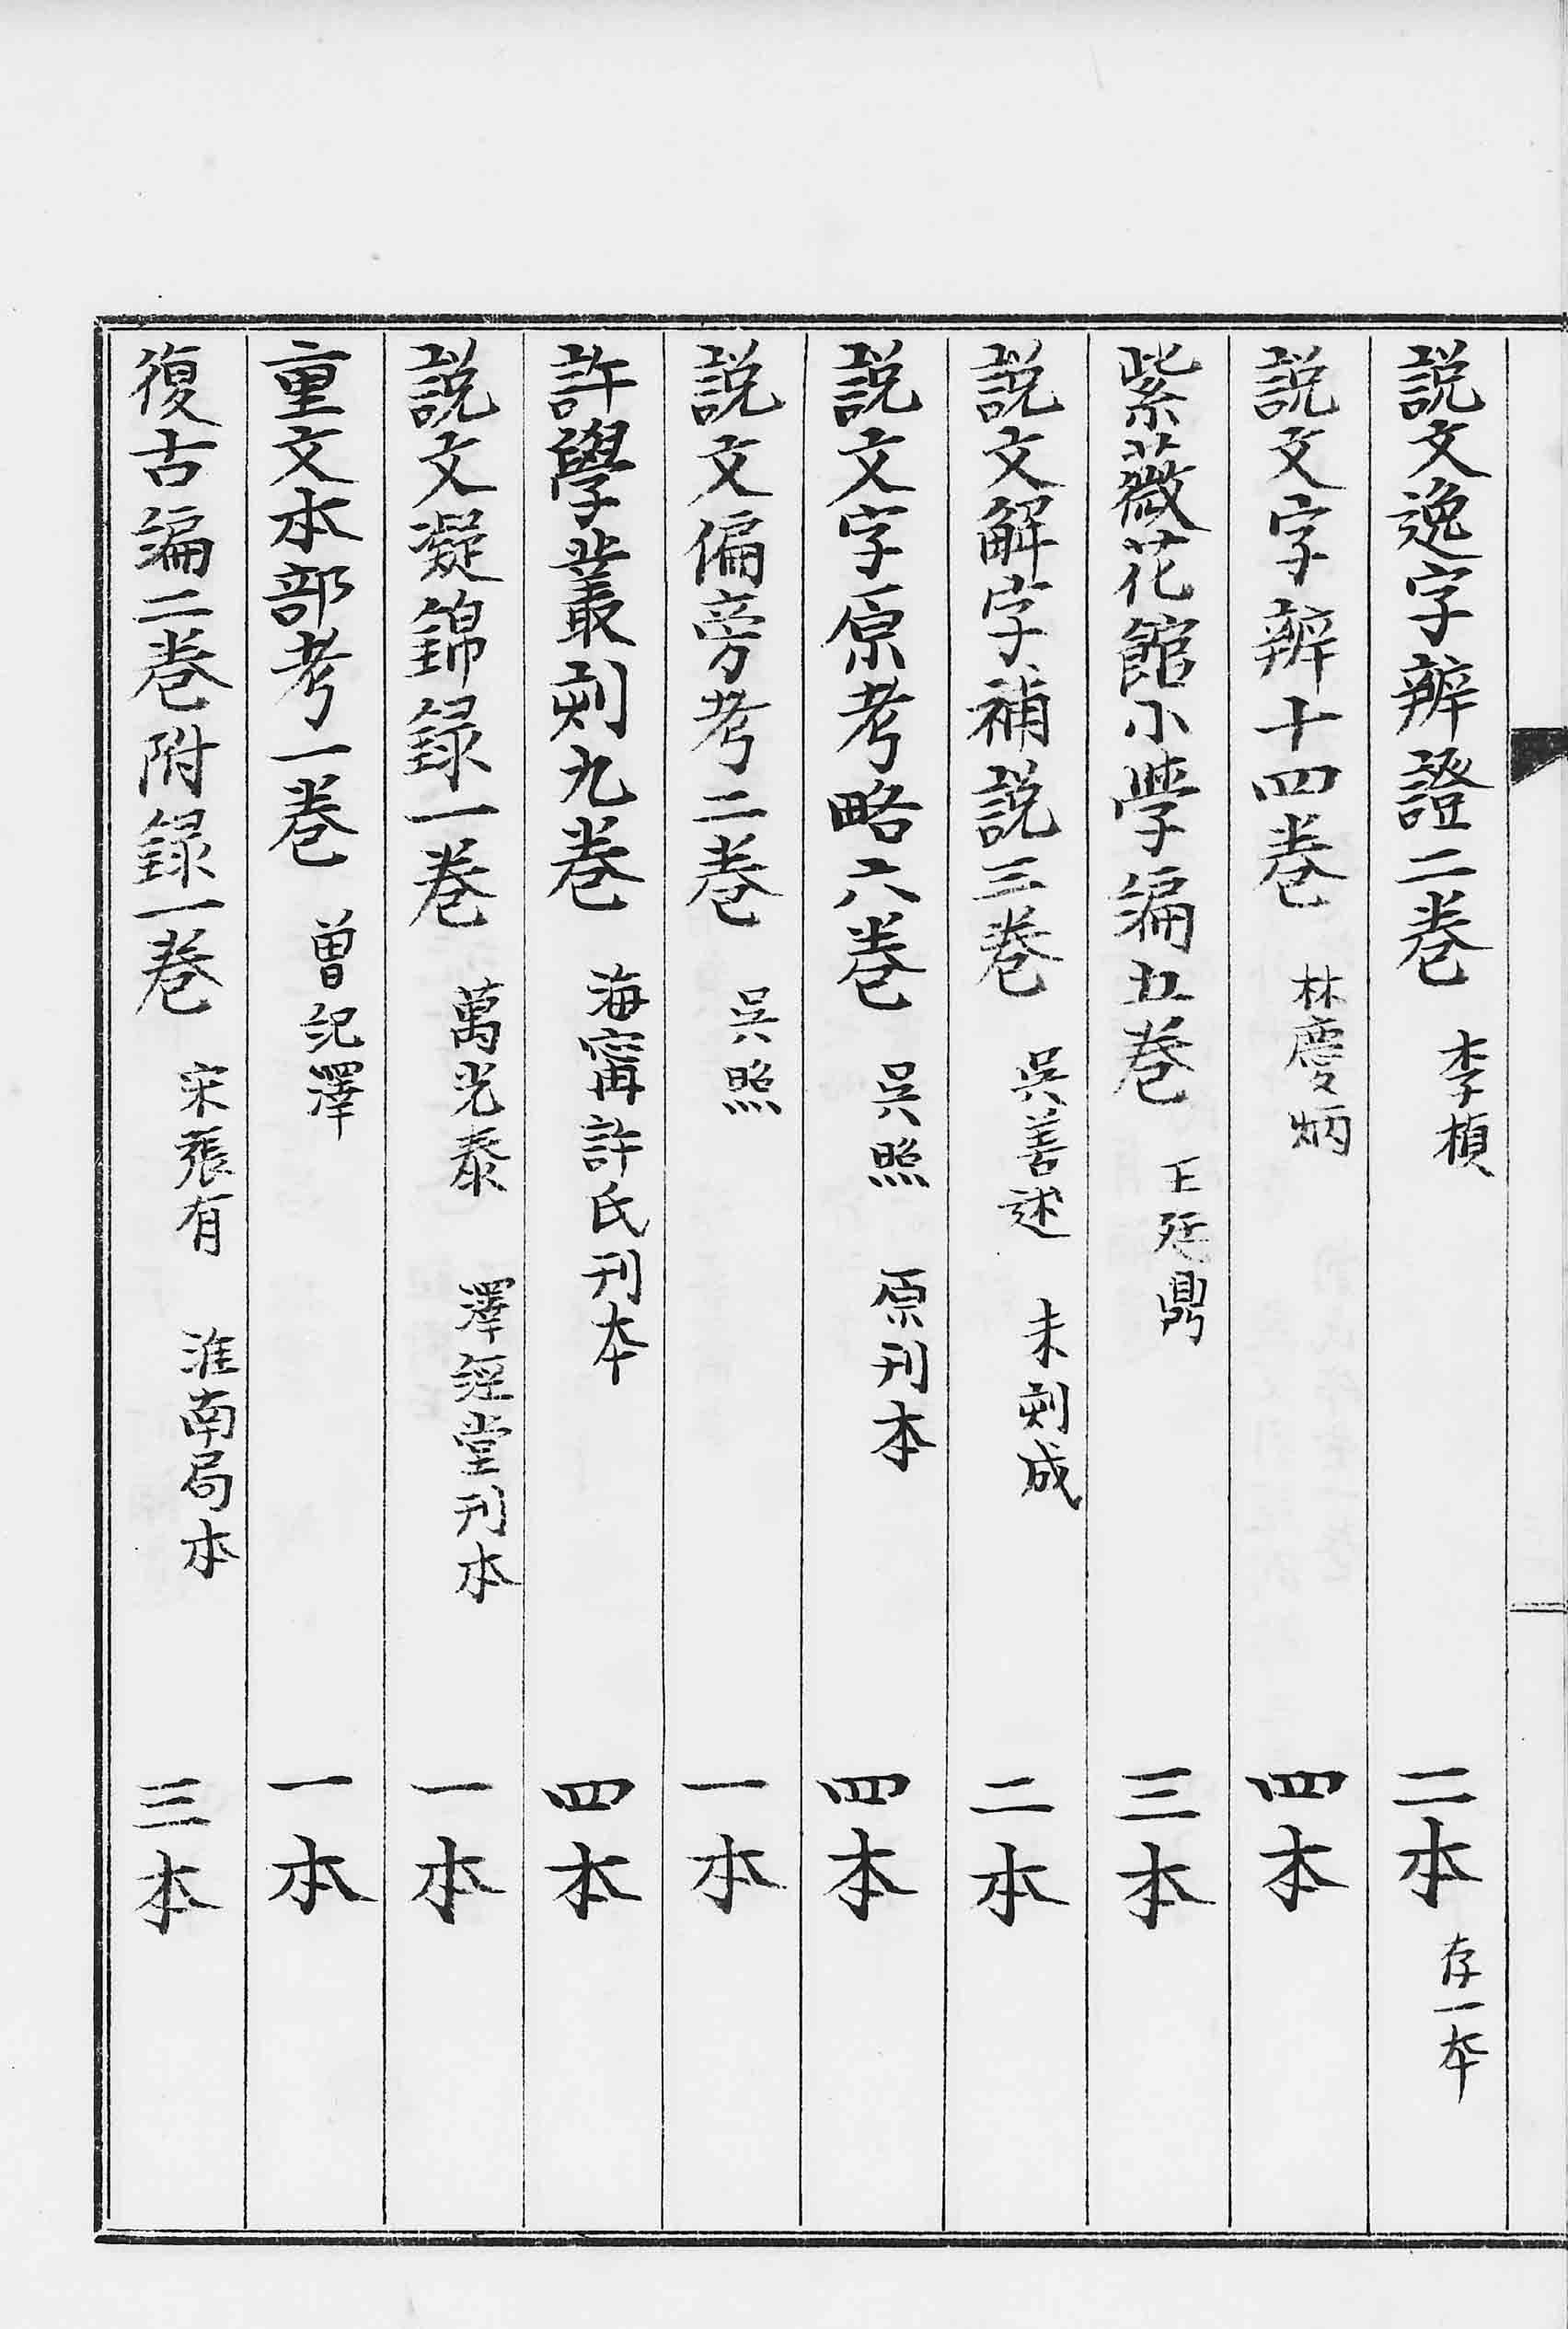 説文逸字辨證二卷 李楨 二本 存一本
説文字辨十四卷 林慶炳 四本
紫薇花館小學編五卷 王廷鼎 三本
説文解字補説三卷 吳善述 未刻成 二本
説文字原考略六卷 吳照 原刊本 四本
説文偏旁考二卷 吳照 一本
許學叢刻九卷 海甯許氏刊本 四本
説文凝錦録一卷 萬光泰 澤經堂刊本 一本
重文本部考一卷 曾紀澤 一本
復古編二卷附録一卷 宋張有 淮南局本 三本